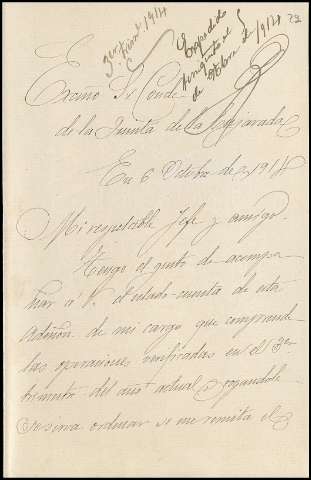 3er trimre 1914
Expedido
finiquito el
de Obre de 1914
72
Excmo Sr Conde
de la Junta de la
En 6 Octubre de 1914
Mi respetable Jefe y amigo:
Tengo el gusto de acompa
ñar a V. el estado-cuenta de esta
Admón de mi cargo que comprende
las operaciones verificadas en el 3er
trimestre del año actual rogandole
se sirva ordenar se me remita el